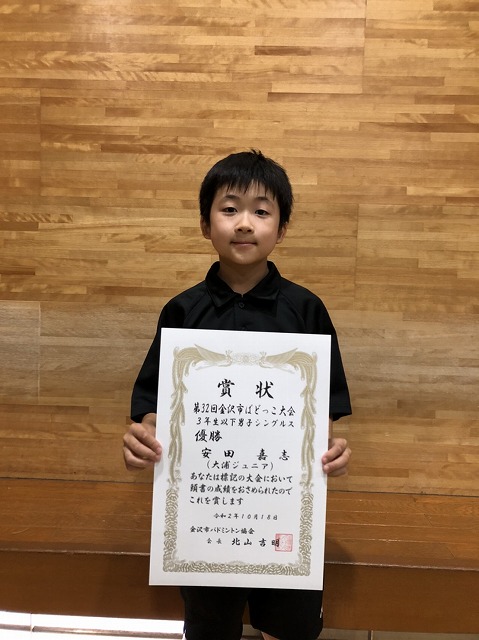 賞状
第32回金沢市ばどっこ大会
3年生以下男子シングルス
優勝
安田 嘉志
(大浦ジュニア)
あなたは標記の大会において
頭書の成績をおさめられたので
これを賞します
令和2年10月18日
金沢市バドミントン協会
会長 北山吉明